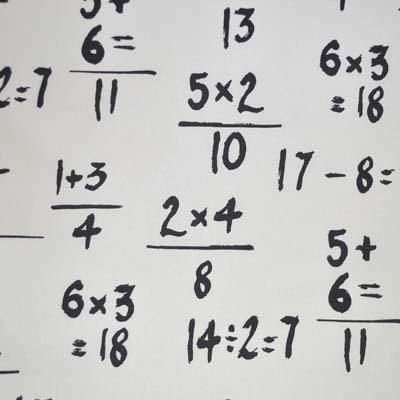 5+
6=
11
13
6×3
=18
2=7
5×2
10
17-8=
1+3
4
2×4
8
5+
6=
11
6×3
=18
14÷2=7